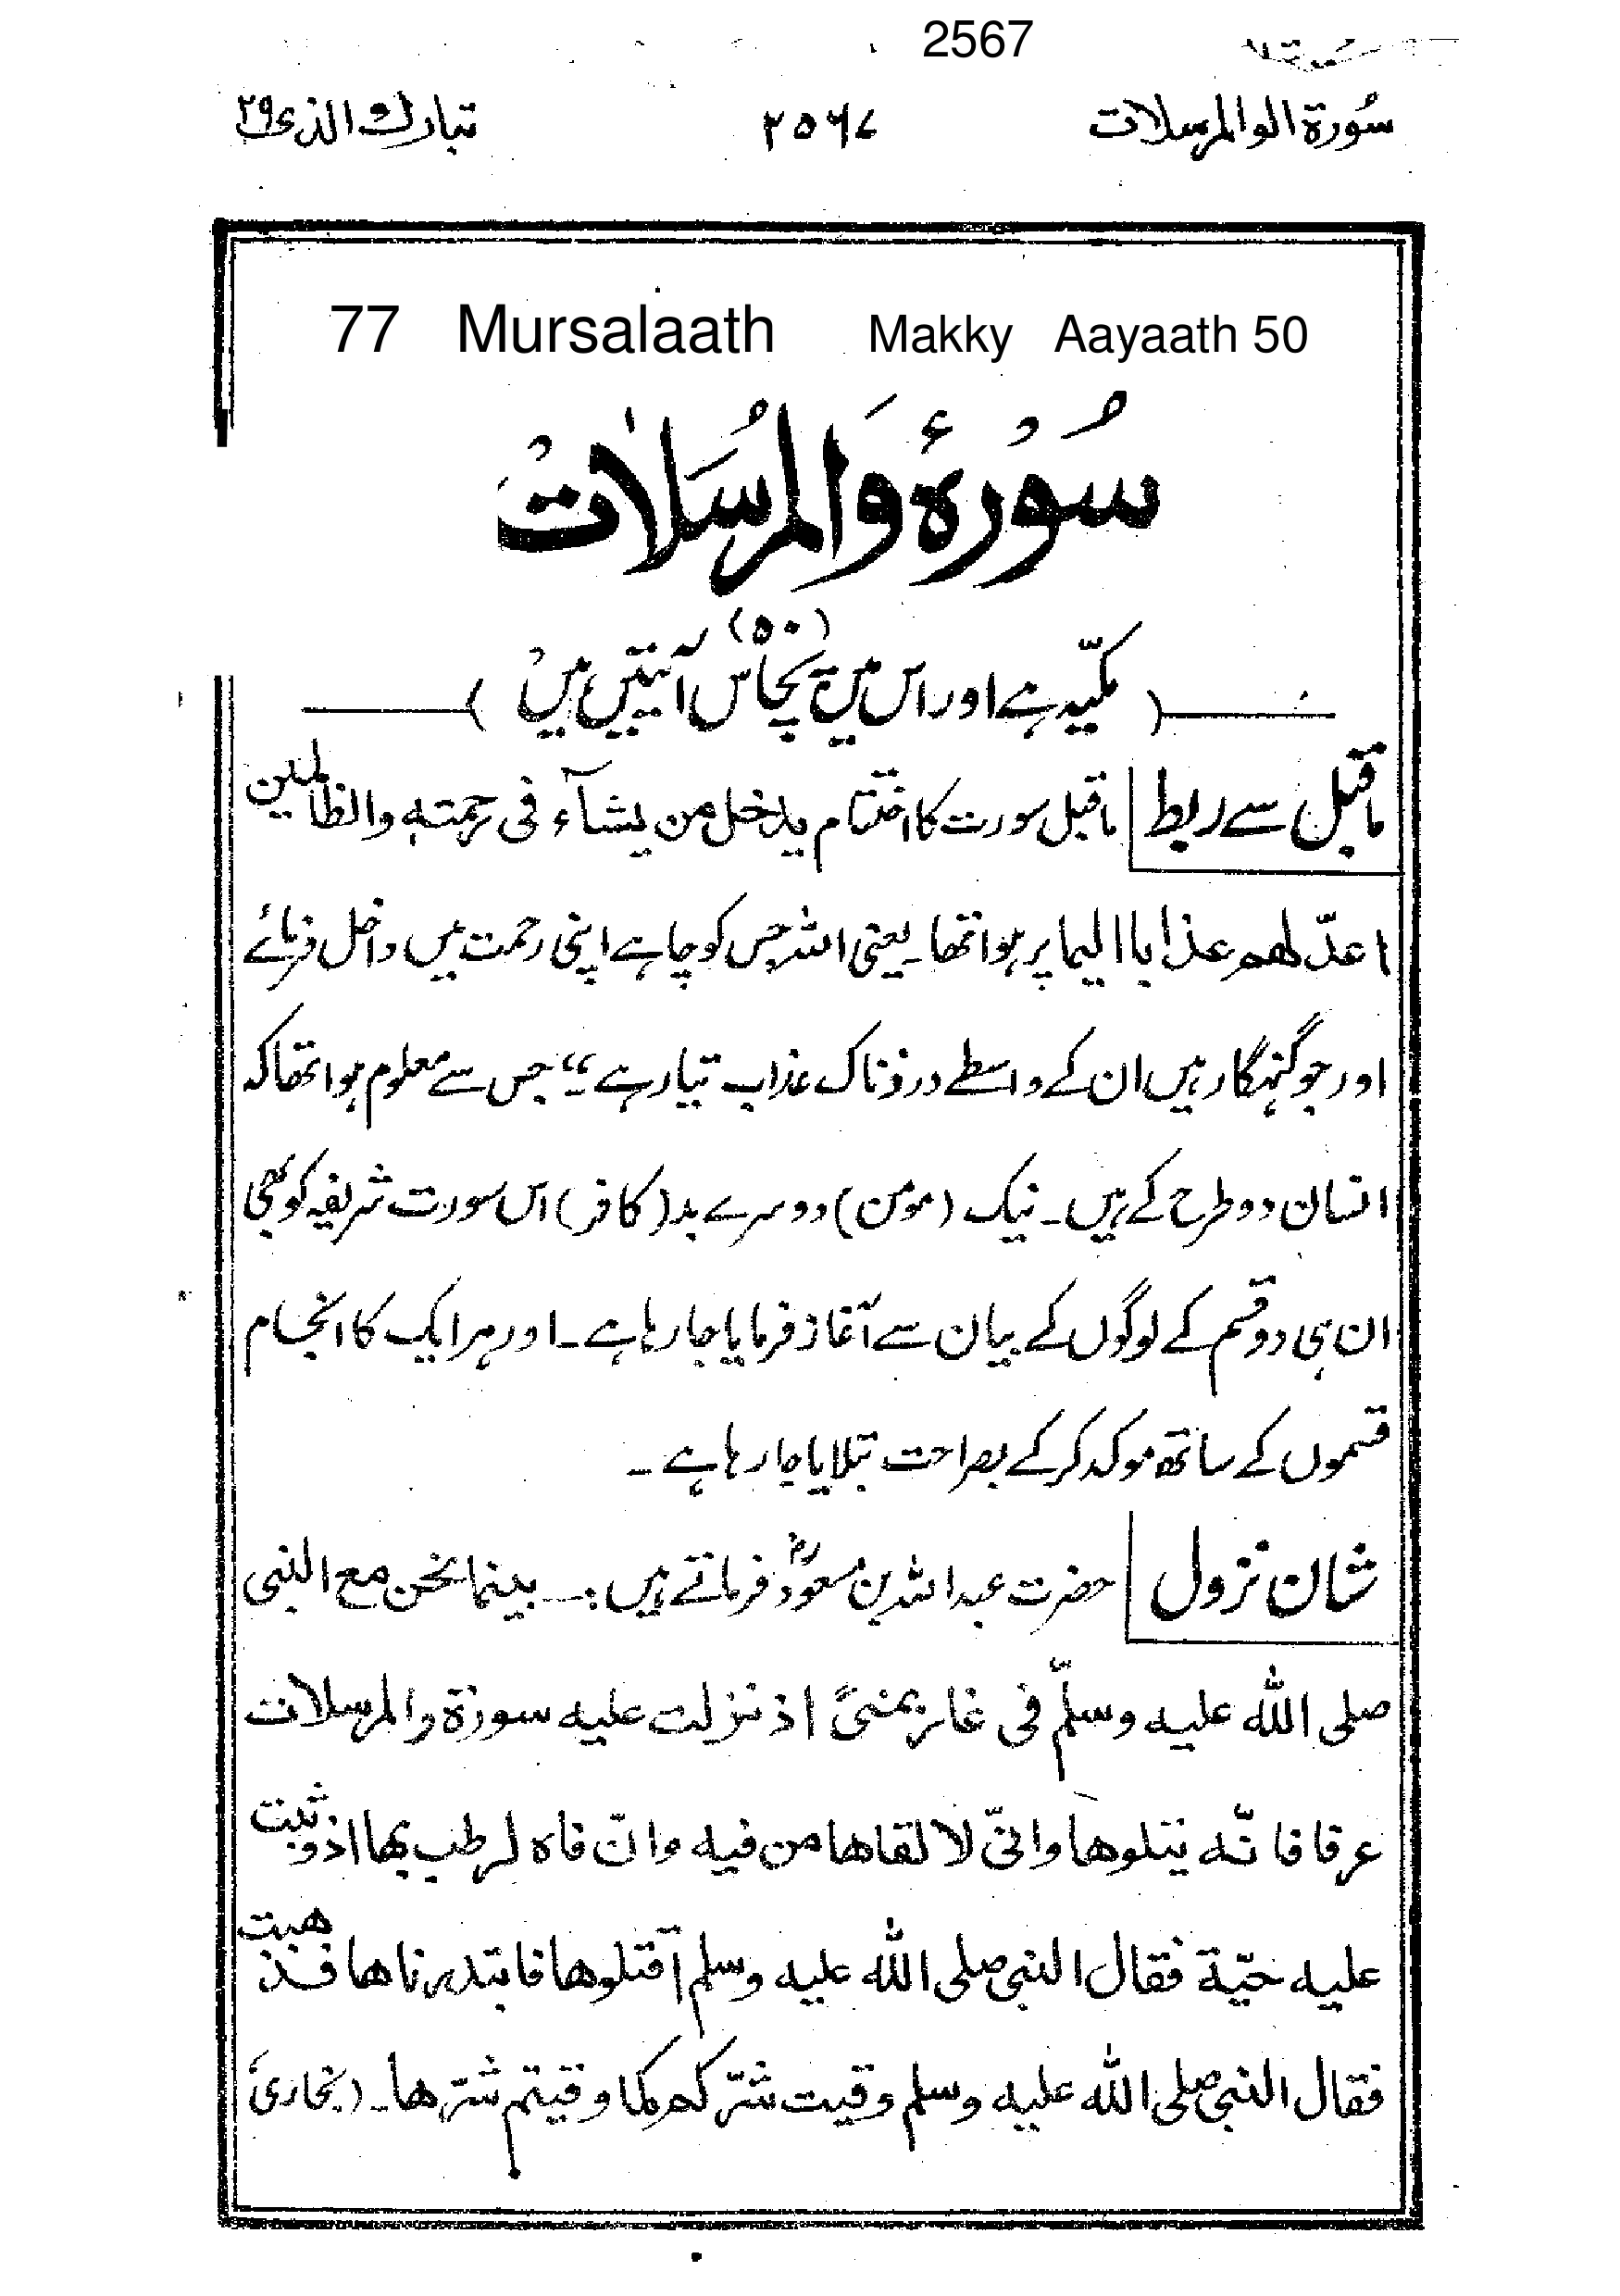 2567
سُورة الوالمرسلات ۲۵۶۷ تبارك الذی ۲۹
77 Mursalaath Makky Aayaath 50
سُوْرۂ وَالمرسَلات
(مکیّہ ہے اور اس میں پچاس (۵۰) آیتیں ہیں)
ماقبل سے ربط ماقبل سورت کا اختتام یدخل من یشآء فی رحمتہٖ والظالمین
اعدّ لھم عذابا الیما پر ہوا تھا۔ یعنی اللہ جس کو چاہے اپنی رحمت میں داخل فرمائے
اور جو گنہگار ہیں ان کے واسطے دردناک عذاب تیار ہے۔“ جس سے معلوم ہوا تھا کہ
انسان دو طرح کے ہیں۔ نیک (مومن) دوسرے بد (کافر) اس سورت شریفہ کو بھی
ان ہی دو قسم کے لوگوں کے بیان سے آغاز فرمایا جارہا ہے۔ اور ہر ایک کا انجام
قسموں کے ساتھ موکد کرکے بصراحت بتلایا جارہا ہے۔
شان نزول حضرت عبداللہ بن مسعودؓ فرماتے ہیں:۔ بینما نحن مع النبی
صلی اللہ علیہ وسلّم فی غار بمنیً اذ نزلت علیہ سورة والمرسلات
عرفا فانّہ یتلوھا وانّی لا لقاھا من فیہ وانّ فاہ لرطب بھا اذ وثبت
علیہ حیّة فقال النبی صلی اللہ علیہ وسلم اقتلوھا فابتدرناھا فذھبت
فقال النبی صلی اللہ علیہ وسلم وقیت شرّکم کما وقیتم شرّھا۔ (بخاریؒ